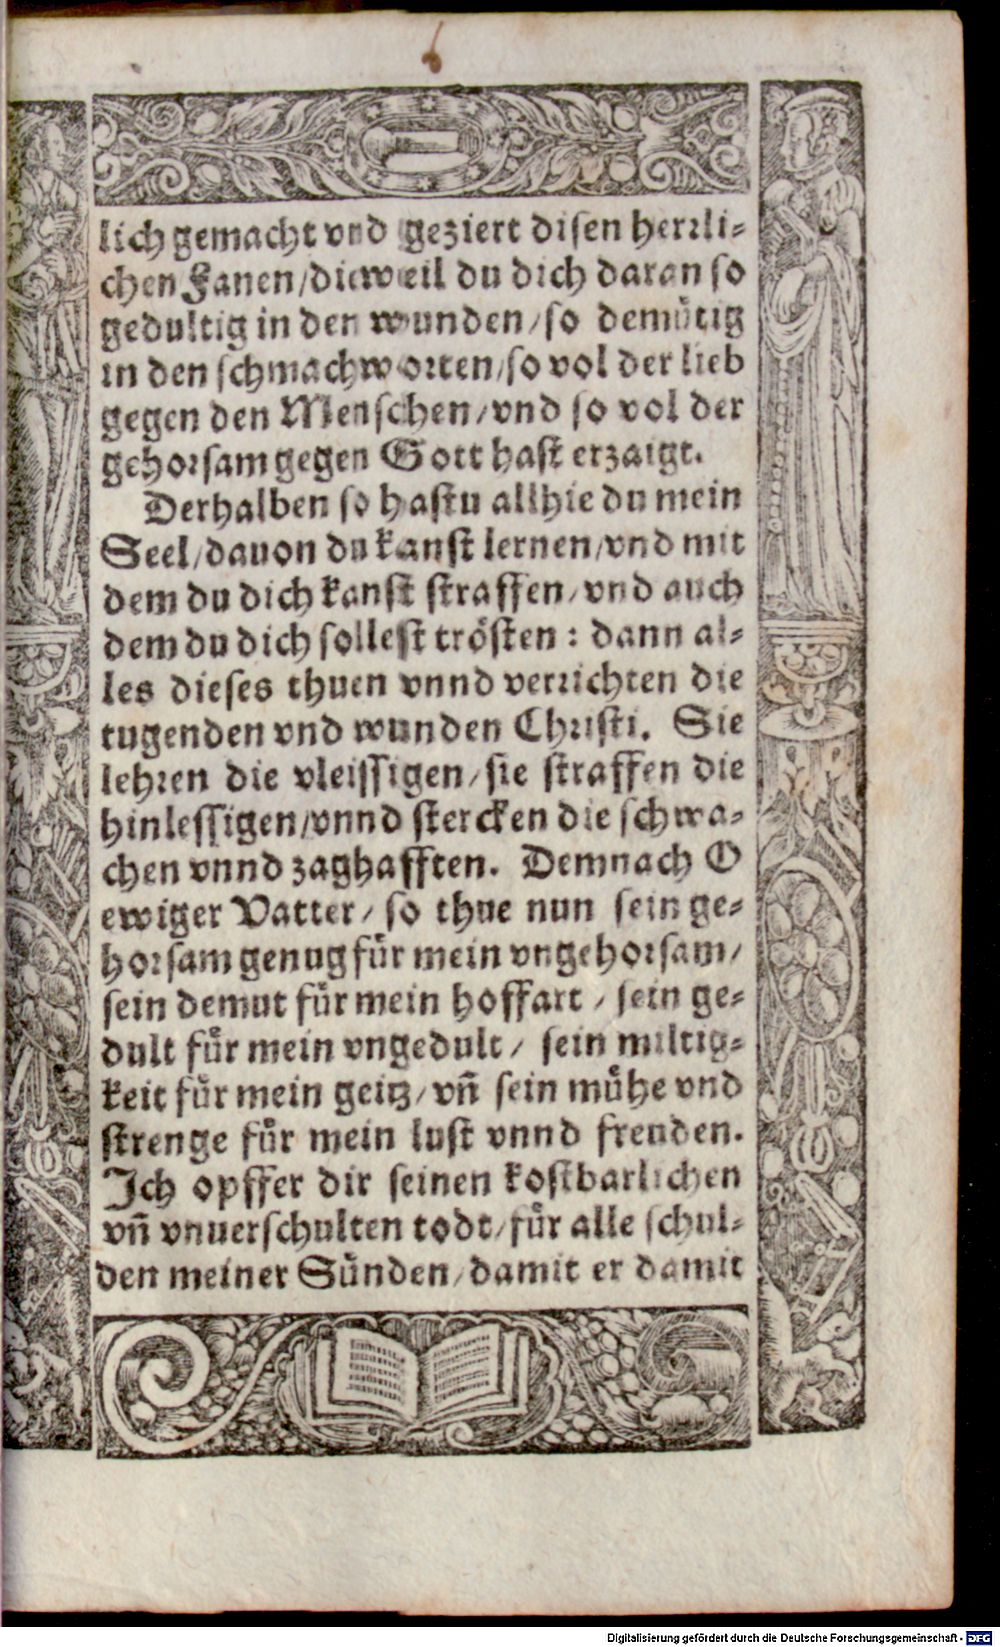 lich gemacht vnd geziert disen herrli-
chen Fanen/dieweil du dich daran so
gedultig in den wunden/so demütig
in den schmachworten/so vol der lieb
gegen den Menschen/vnd so vol der
gehorsam gegen Gott hast erzaigt.
Derhalben so hastu allhie du mein
Seel/dauon du kanst lernen/vnd mit
dem du dich kanst straffen/vnd auch
dem du dich sollest trösten: dann al-
les dieses thuen vnnd verrichten die
tugenden vnd wunden Christi. Sie
lehren die vleissigen/sie straffen die
hinlessigen/vnnd stercken die schwa-
chen vnnd zaghafften. Demnach O
ewiger Vatter/ so thue nun sein ge-
horsam genug für mein vngehorsam/
sein demut für mein hoffart/ sein ge-
dult für mein vngedult/ sein miltig-
keit für mein geitz/vn̄ sein mühe vnd
strenge für mein lust vnnd freuden.
Ich opffer dir seinen kostbarlichen
vn̄ vnuerschulten todt/für alle schul-
den meiner Sünden/damit er damit
Digitalisierung gefördert durch die Deutsche Forschungsgemeinschaft - DFG